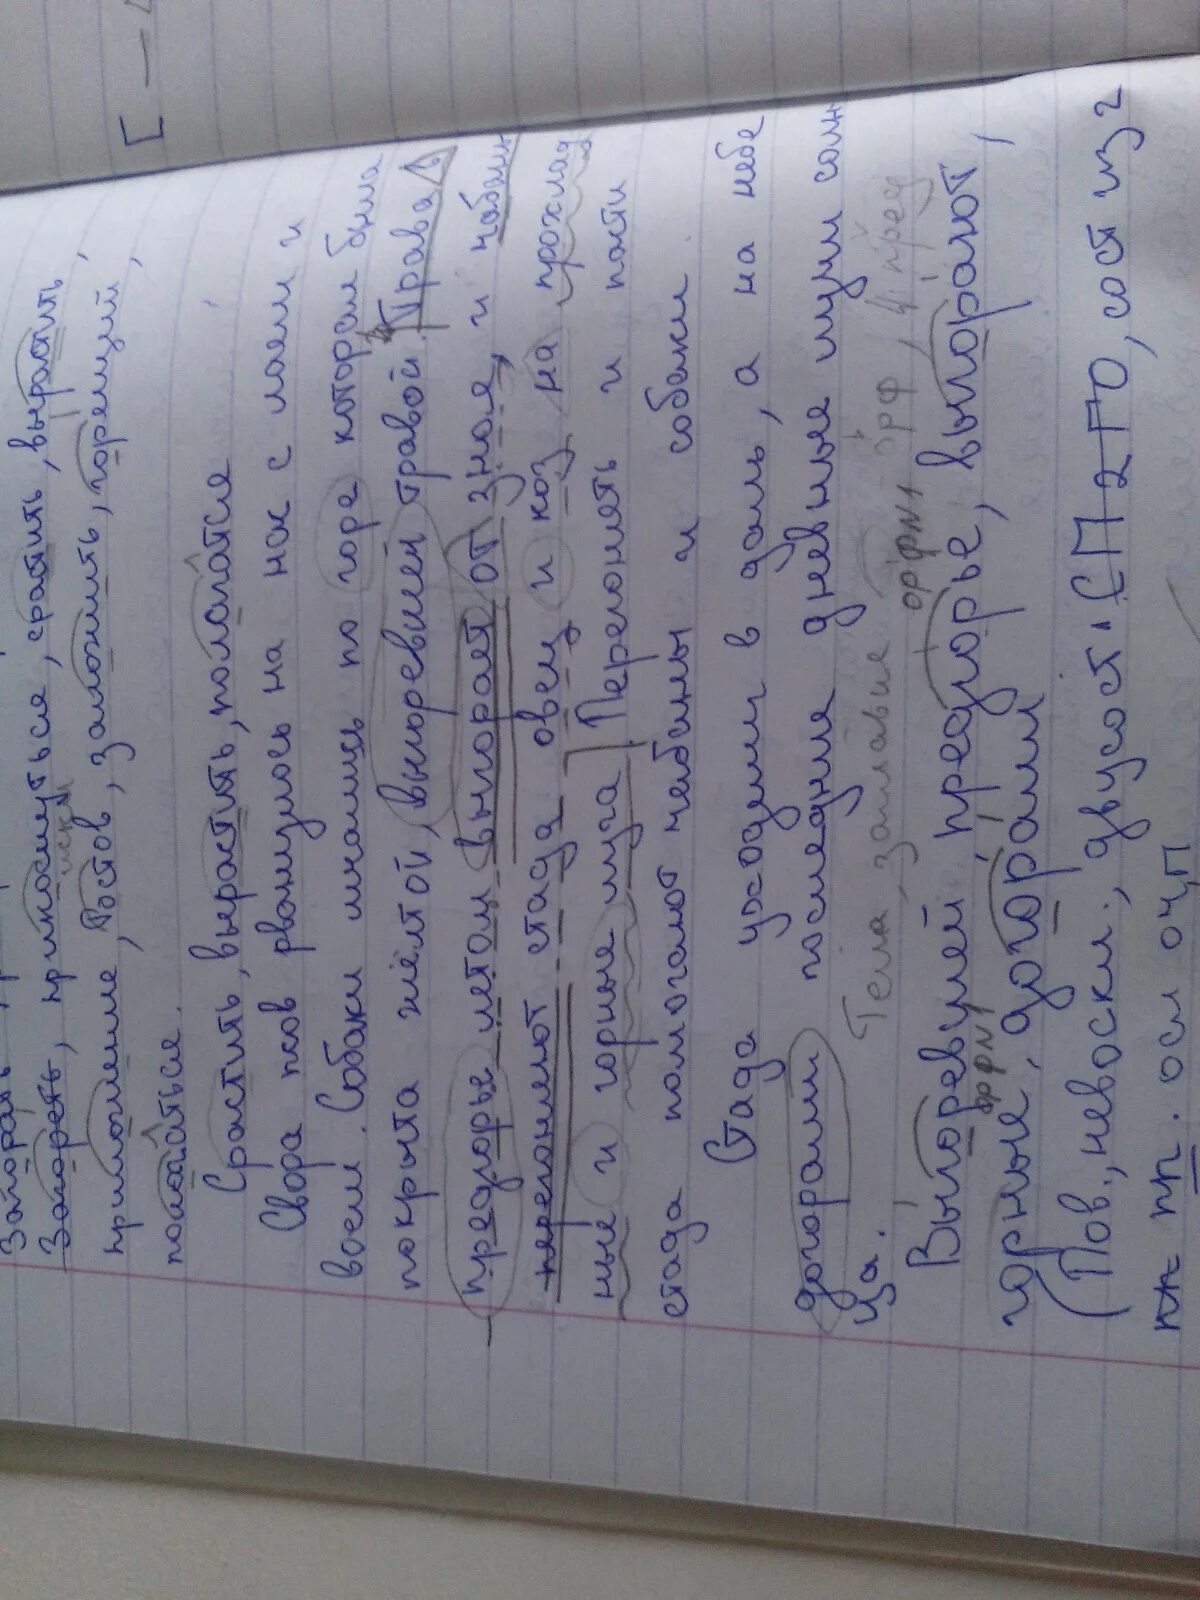 Загорать
Загореть, прикоснуться, срастить, вырастить,
искл
приложение, Ростов, заложить, горещий,
полагаться.
Срастить, вырастить, полагатся
Свора псов рванулось на нас с лаем и
воем. Собаки мчались по горе которая была
покрыта жёлтой, выгоревшей травой. Трава в
предгорье летом выгорает от зноя, и чабаны
перегоняют стада овец и коз на прохлад
ные и горные луга. Перегонять и пасти
стада помогают чабаны и собаки.
Стада уходили в даль, а на небе
догорали последние дневные лучи солн
ца. Тема, заглавие орф, 4 пред
орф№1
Выгоревшей предгорье, выгорают,
орф№1
горные, догорали
(Пов., невоскл., двусост. СП 2 ГО, сост из 2
пп. осл оч,п